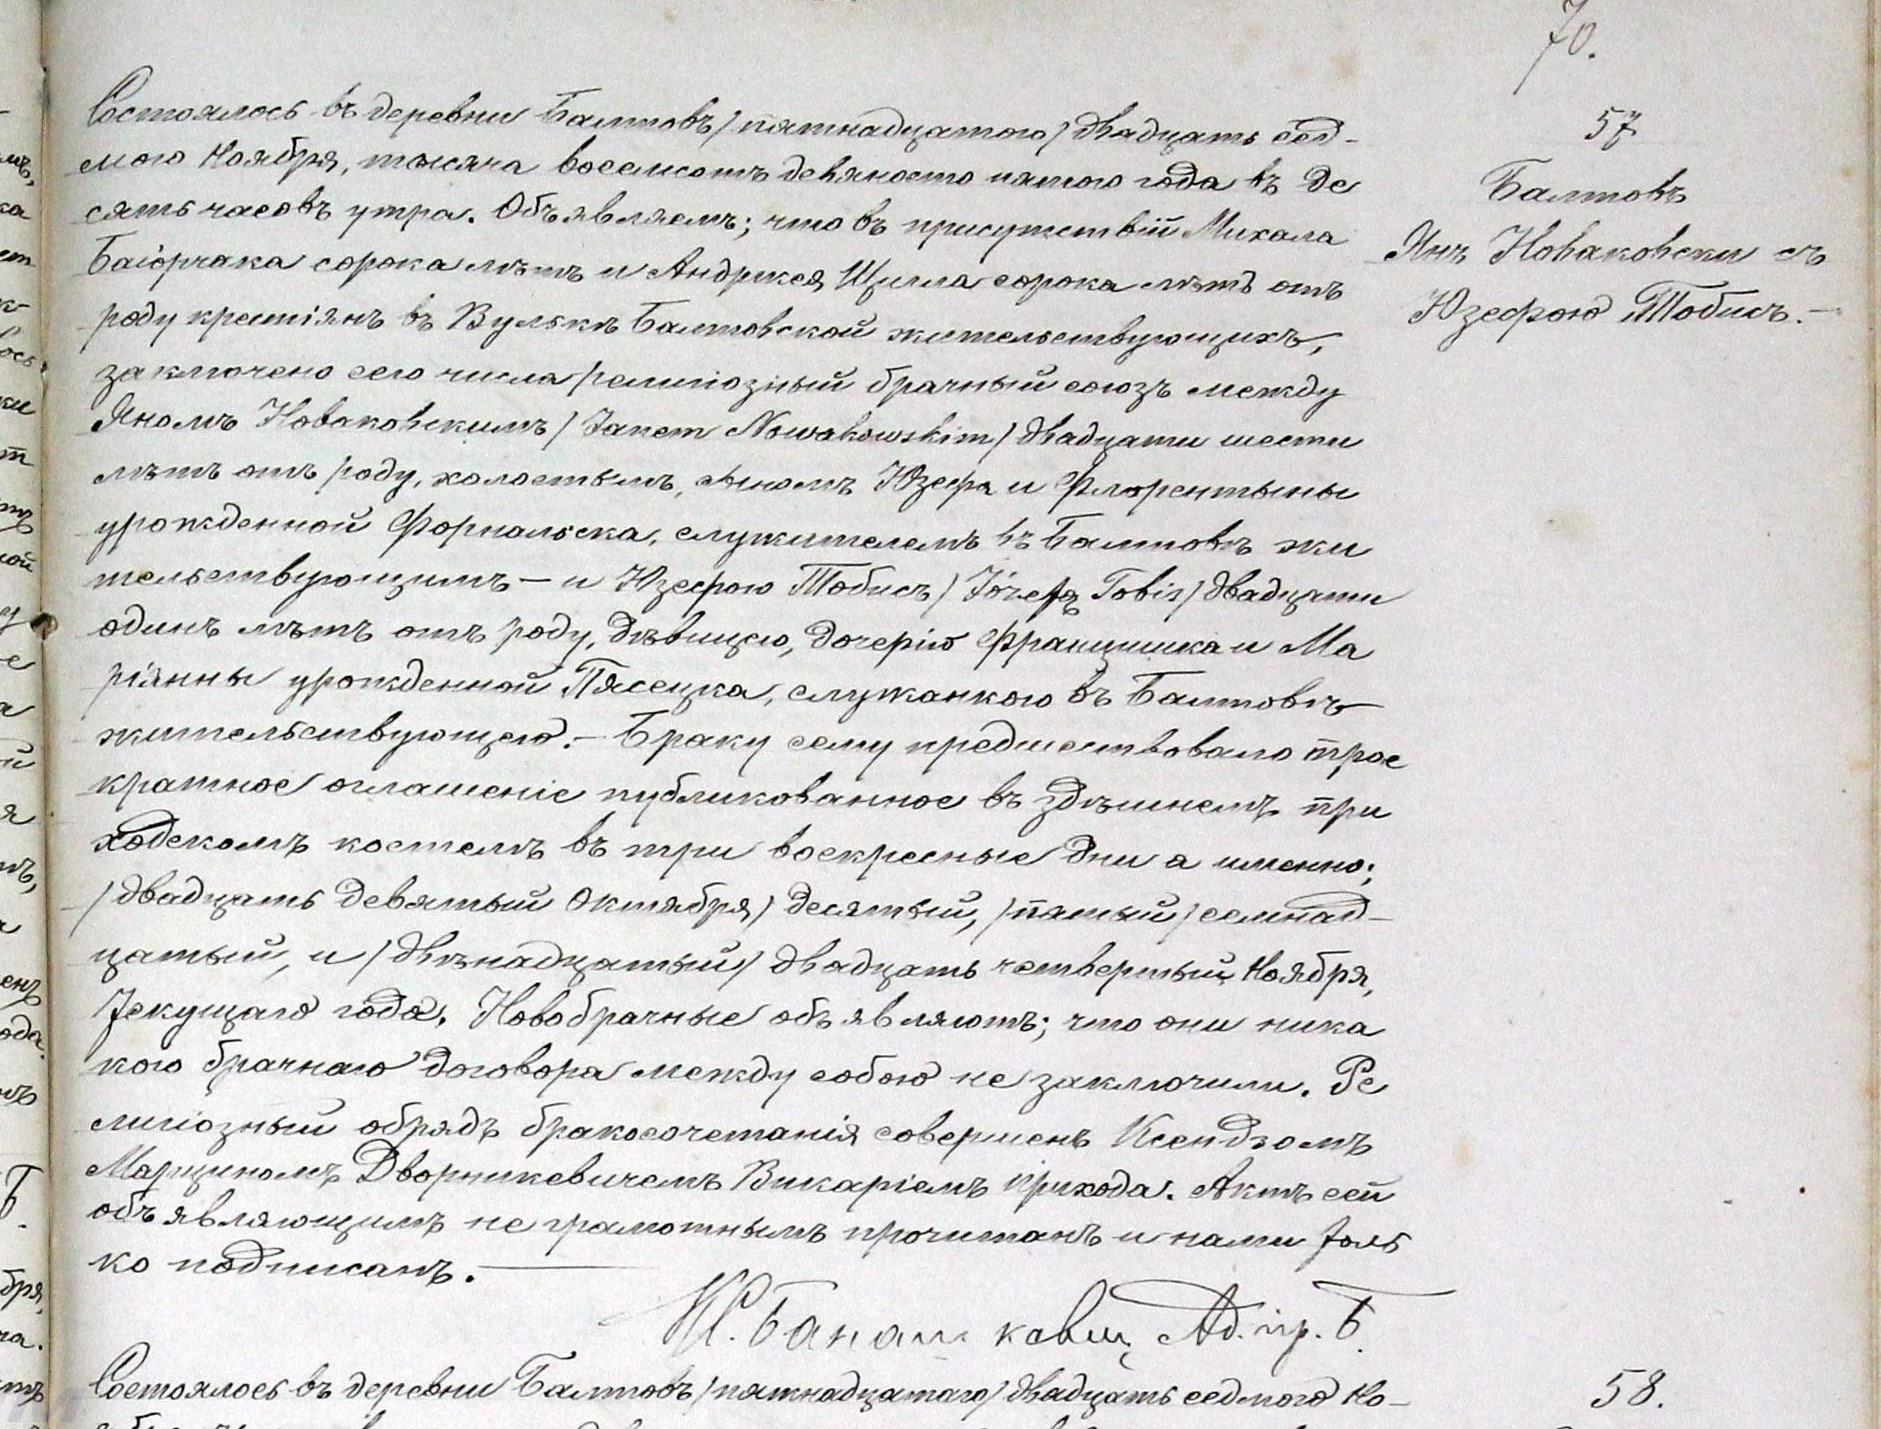 70.
57
Балтовъ
Янъ Новаковски съ
Юзефою Тобисъ.—
Состоялось въ деревни Балтовъ /пятнадцатого/ двадцать сед-
мого Ноября, тысяча восемсотъ девяносто пятого года въ де
сять часовъ утра. Объявляемъ; что въ присутствіи Михала
сорока лѣтъ и Андрžея Щигла сорока лѣтъ отъ
роду крестіянъ въ Вулькѣ Балтовской жительствующихъ,
заключено сего числа религіозный брачный союзъ между
Яномъ Новаковскимъ /Janem Nowakowskim/ двадцати шести
лѣтъ отъ роду, холостымъ, сыномъ Юзефа и Флорентыны
урожденной Форнальска, служителемъ въ Балтовѣ жи
тельствующимъ — и Юзефою Тобисъ /Józefą Tobis/ двадцати
одинъ лѣтъ отъ роду, дѣвицею, дочерію Францишка и Ма
ріянны урожденной Пясецка, служанкою въ Балтовѣ
жительствующею.— Браку сему предшествовало трое
кратное оглашеніе публикованное въ здѣшнемъ при
ходскомъ костелѣ въ три воскресные дни а именно;
/двадцать девятый Октября/ десятый, /пятый/ семнад-
цатый, и /двѣнадцатый/ двадцать четвертый Ноября,
текущаго года. Новобрачные объявляютъ; что они ника
кого брачнаго договора между собою не заключили. Ре
лигіозный обрядъ бракосочетанія совершенъ Ксендзомъ
Марциномъ Дворникевичемъ Викаріемъ прихода. Актъ сей
объявляющимъ не грамотнымъ прочитанъ и нами толь
ко подписанъ.
Ад. пр. Б.
58.
Состоялось въ деревни Балтовъ /пятнадцатаго/ двадцать седмого Но-